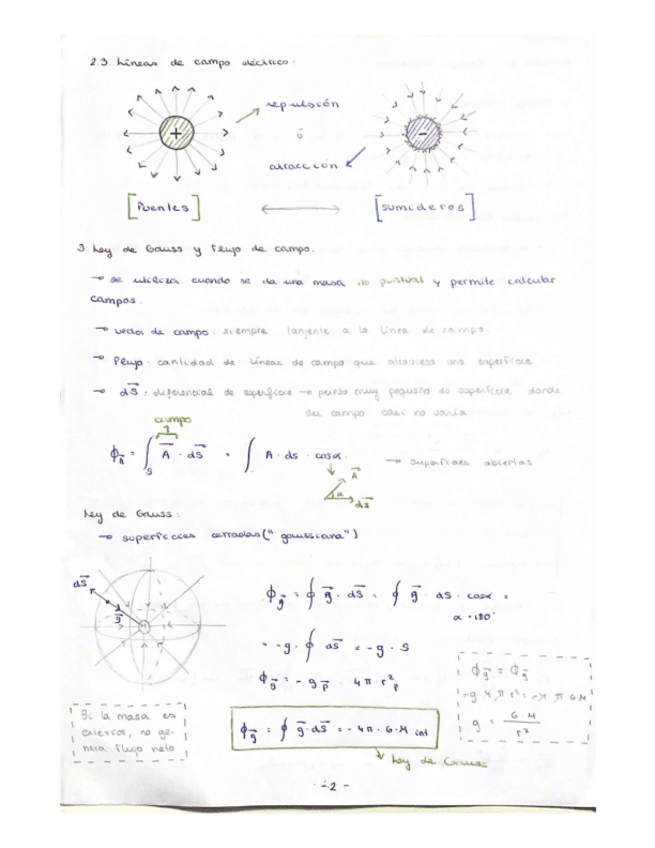 2.3. Líneas de campo eléctrico.
repulsión
+
ó
-
atracción
[Fuentes]
[sumideros]
3 Ley de Gauss y Flujo de campo.
→ se utiliza cuando se da una masa no puntual y permite calcular
campos.
→ vector de campo: siempre tanjente a la línea de campo.
→ Flujo: cantidad de líneas de campo que atraviesa una superficie
→ dS⃗: diferencial de superficie → punto muy pequeño de superficie donde
del campo casi no varía
campo
ϕ_A⃗ = ∫_S A⃗ · dS⃗ = ∫ A · ds · cosα.
→ superficies abiertas
A⃗
α
dS⃗
Ley de Gauss:
→ superficies cerradas ("gaussiana")
dS⃗
g⃗
M
ϕ_g⃗ = ∮ g⃗ · dS⃗ = ∮ g⃗ · dS · cosα =
α = 180°
= -g · ∮ dS⃗ = -g · S
ϕ_g⃗ = - g_p⃗ · 4π · r²_p
ϕ_g⃗ = ϕ_g⃗
-g 4 π r² = -4 π G M
g = G M / r²
Si la masa es
exterior, no ge-
nera flujo neto
ϕ_g⃗ = ∮ g⃗ · dS⃗ = - 4π · G · M int
Ley de Gauss
- 2 -